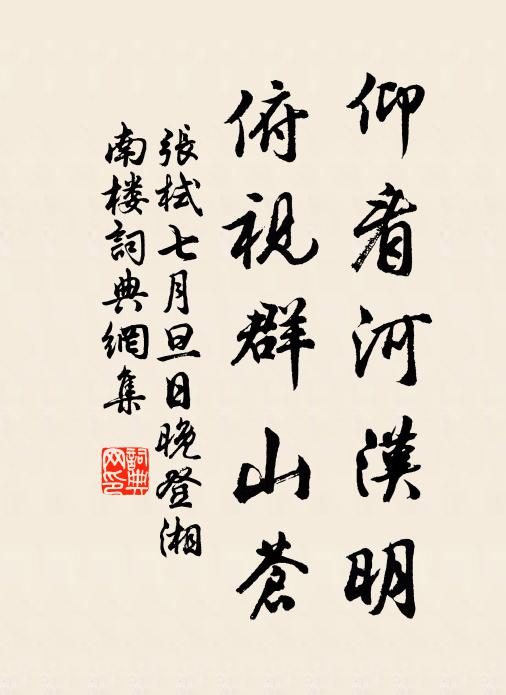 仰看河漢明
俯視群山蒼
張栻七月旦日晚登湘
南楼詞典網集
詞典
网印